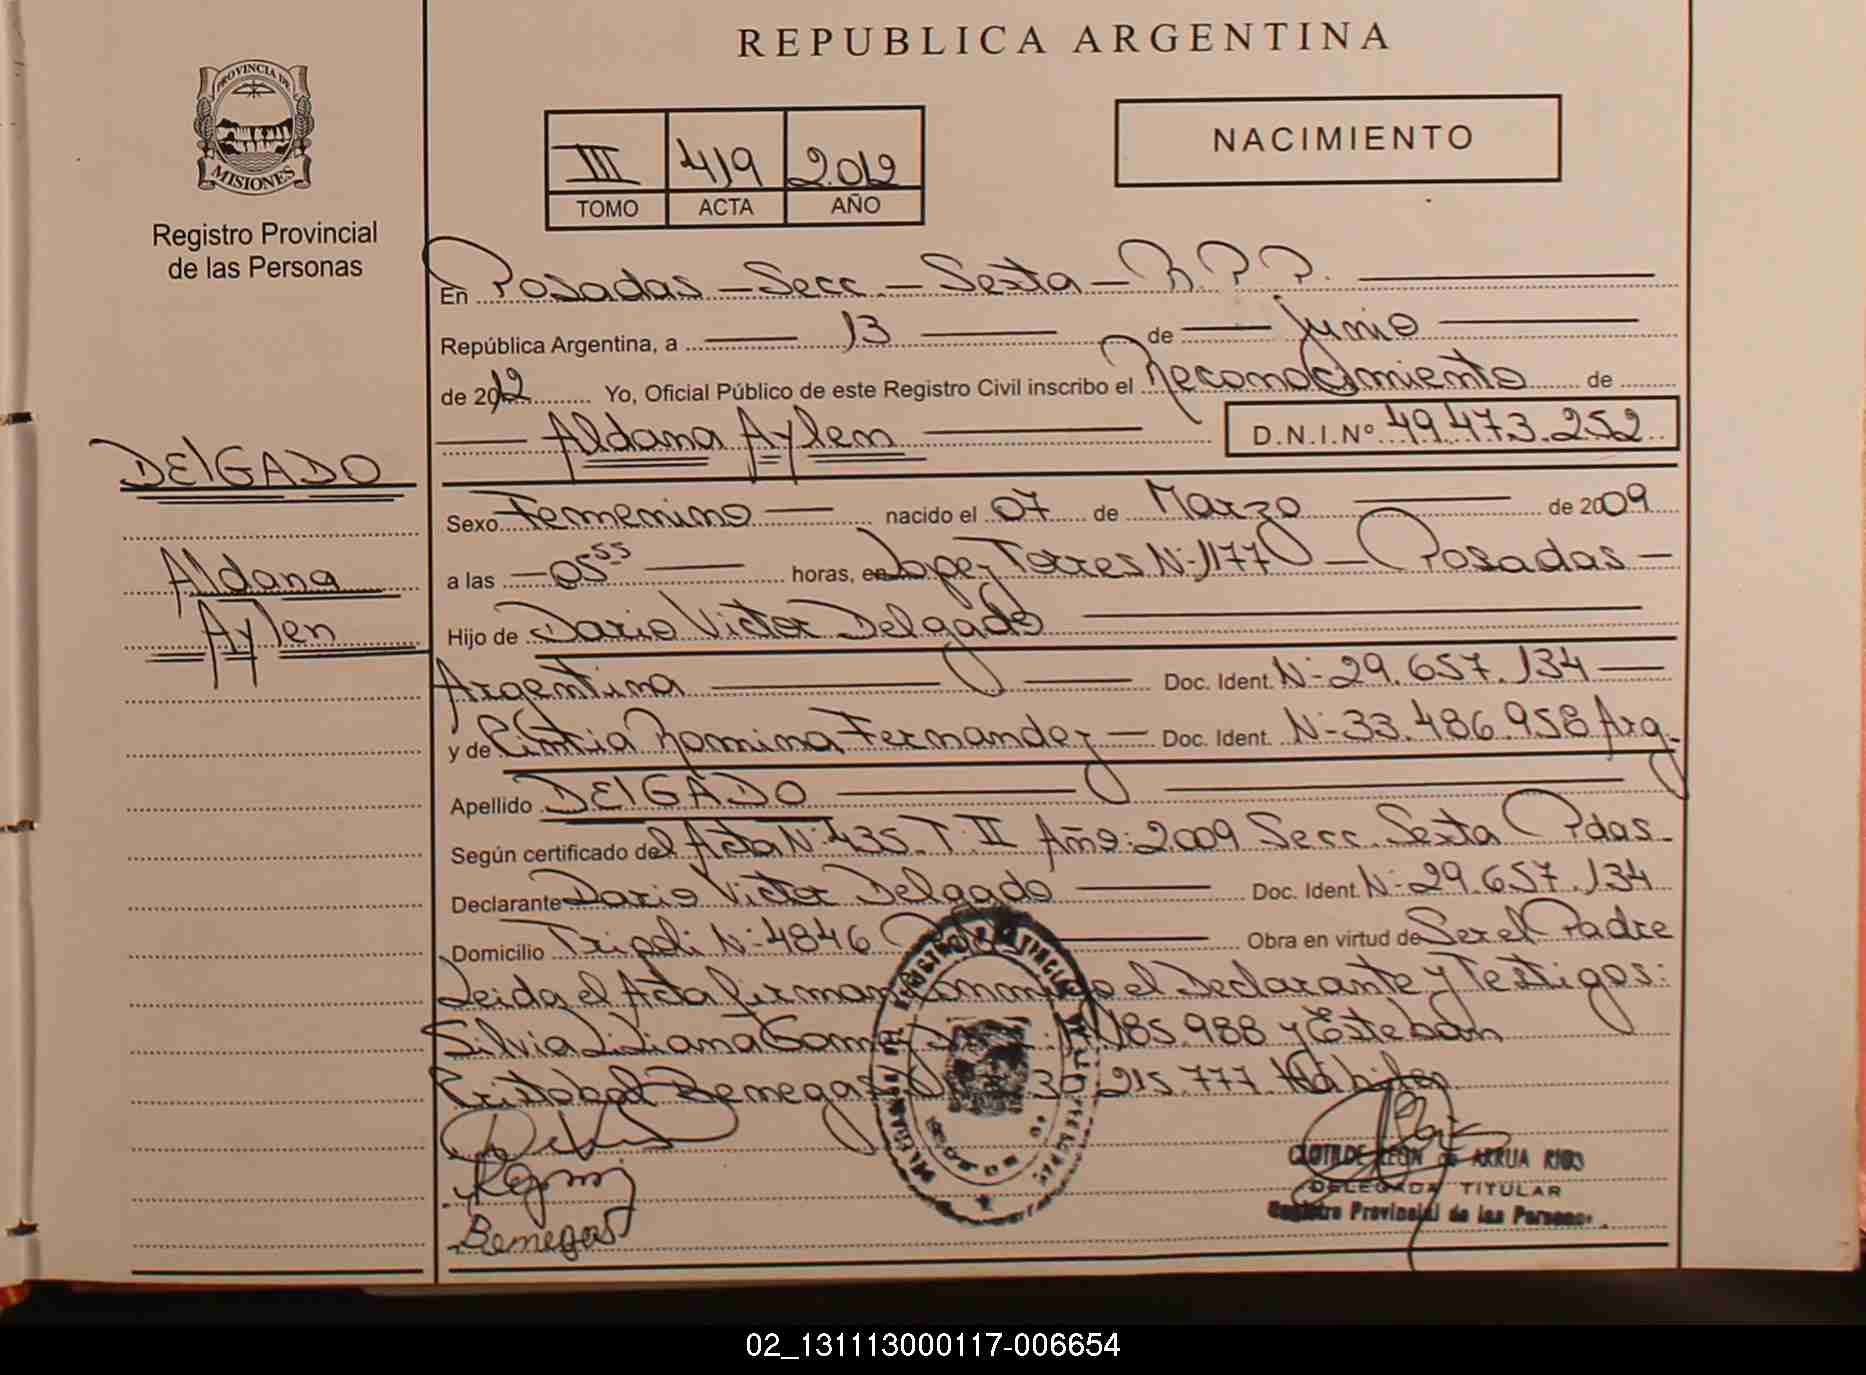 REPUBLICA ARGENTINA
PROVINCIA DE
MISIONES
Registro Provincial
de las Personas
III 419 2012
TOMO ACTA AÑO
NACIMIENTO
En Posadas - Secc. - Sexta - R.P.P.
República Argentina, a 13 de Junio
de 2012 Yo, Oficial Público de este Registro Civil inscribo el Reconocimiento de
Aldana Aylen D.N.I.Nº 49.473.252
DELGADO
Aldana
Aylen
Sexo Femenino nacido el 07 de Marzo de 2009
a las 05:55 horas, en Lopez Torres N-1177 - Posadas -
Hijo de Dario Victor Delgado
Argentina Doc. Ident. N-29.657.134
y de Cintia Romina Fernandez Doc. Ident. N-33.486.958 Arg.
Apellido DELGADO
Según certificado del Acta N:435. T. II Año: 2009 Secc. Sexta Pdas.
Declarante Dario Victor Delgado Doc. Ident. N-29.657.134
Domicilio Tripoli N:4846 Obra en virtud de Ser el Padre
Leida el Acta firman conmigo el Declarante y Testigos:
Silvia Liliana 185.988 y Esteban
Cristobal Benegas 30.215.777. Hábiles
Benegas
CLOTILDE LEON de ARRUA RIOS
DELEGADA TITULAR
Registro Provincial de las Personas
02_131113000117-006654